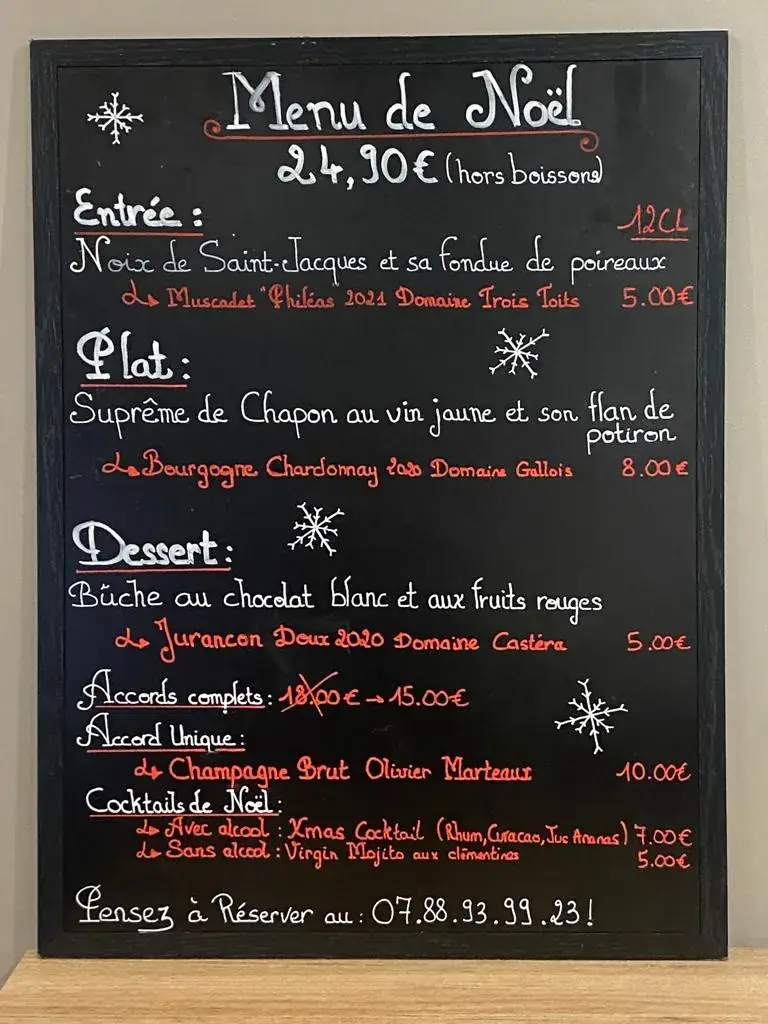 Menu de Noël
24,90€ (hors boissons)
Entrée :
12CL
Noix de Saint-Jacques et sa fondue de poireaux
↳ Muscadet "Philéas 2021 Domaine Trois Toits 5.00€
Plat :
Suprême de Chapon au vin jaune et son flan de
potiron
↳ Bourgogne Chardonnay 2020 Domaine Gallois 8.00€
Dessert :
Bûche au chocolat blanc et aux fruits rouges
↳ Jurancon Doux 2020 Domaine Castéra 5.00€
Accords complets : 18.00€ → 15.00€
Accord Unique :
↳ Champagne Brut Olivier Marteaux 10.00€
Cocktails de Noël :
↳ Avec alcool : Xmas Cocktail (Rhum, Curacao, Jus Ananas) 7.00€
↳ Sans alcool : Virgin Mojito aux clémentines 5.00€
Pensez à Réserver au : 07.88.93.99.23!